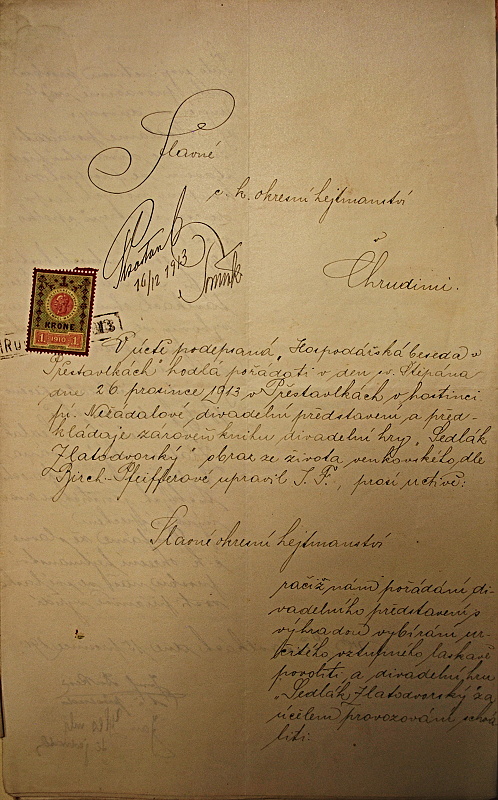 Slavné
c. k. okresní hejtmanství
v
Chrudimi.
16/12 1913
1
KRONE
1 1910 1
13
V úctě podepsaná „Hospodářská beseda v
Přestavlkách hodlá pořádati v den sv. Štěpána
dne 26 prosince 1913 v Přestavlkách v hostinci
pí. Nezádalové divadelní představení a před-
kládaje zároveň knihu divadelní hry „Sedlák
Zlatodvorský" obraz ze života venkovského dle
Birch-Pfeifferové upravil J. F.", prosí uctivě:
Slavné okresní hejtmanství
račiž nám pořádání di-
vadelního představení s
výhradou vybírání ur-
čitého vstupného laskavě
povoliti a divadelní hru
„Sedlák Zlatodvorský" za
účelem provozování schvá
liti.